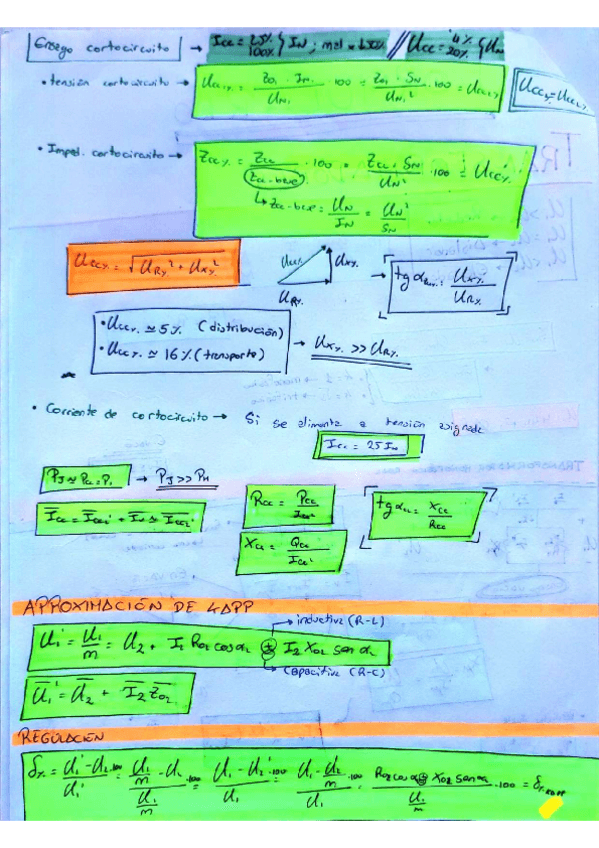 Ensayo cortocircuito → Icc = 25% 100% } IN ; // Ucc = 4% 20% } UN
• tensión cortocircuito → Ucc% = Z01 · IN1 / UN1 · 100 = Z01 · SN / UN1² · 100 = Ucc2%
Ucc1% = Ucc2%
• Imped. cortocircuito → Zcc% = Zcc / Zcc-base · 100 = Zcc · SN / UN² · 100 = Ucc%
↳ Zcc-base = UN / IN = UN² / SN
Ucc% = √UR%² + UX%²
Ucc% UX% UR%
→ tg α = UX% / UR%
• Ucc% ≃ 5% (distribución)
• Ucc% ≃ 16% (transporte)
→ UX% >> UR%
• Corriente de cortocircuito → Si se alimenta a tensión asignada
Icc = 25 IN
PJ ≃ Pcc = P1 → PJ >> PH
Icc = Icc2' + Io ≃ Icc2'
Rcc = Pcc / Icc²
Xcc = Qcc / Icc²
tg αcc = Xcc / Rcc
APROXIMACIÓN DE KAPP
→ inductiva (R-L)
U1' = U1 / m = U2 + I2 R02 cos α2 ± I2 X02 sen α2
→ capacitiva (R-C)
U1' = U2 + I2 Z02
REGULACIÓN
δ% = U1' - U2 / U1' · 100 = U1/m - U2 / U1/m · 100 = U1 - U2' / U1 · 100 = U1 - U2 / U1 · 100 = R02 cos α ± X02 sen α2 / U1/m · 100 = δ% KAPP